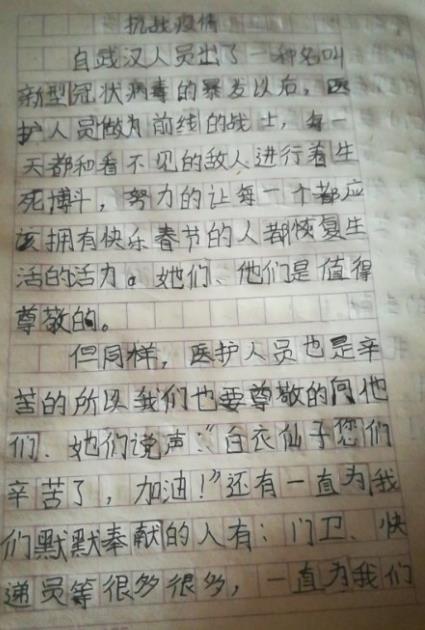 抗战疫情
自武汉人员出了一种名叫
新型冠状病毒的暴发以后，医
护人员做为前线的战士，每一
天都和看不见的敌人进行着生
死博斗，努力的让每一个都应
该拥有快乐春节的人都恢复生
活的活力。她们、他们是值得
尊敬的。
但同样，医护人员也是辛
苦的所以我们也要尊敬的向他
们、她们说声：“白衣仙子您们
辛苦了，加油！”还有一直为我
们默默奉献的人有：门卫、快
递员等很多很多，一直为我们